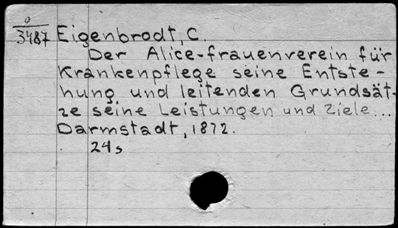 o
3487 Eigenbrodt, C.
Der Alice-frauenverein für
Krankenpflege seine Entste-
hung und leitenden Grundsät-
ze seine Leistungen und Ziele...
Darmstadt, 1872.
24s